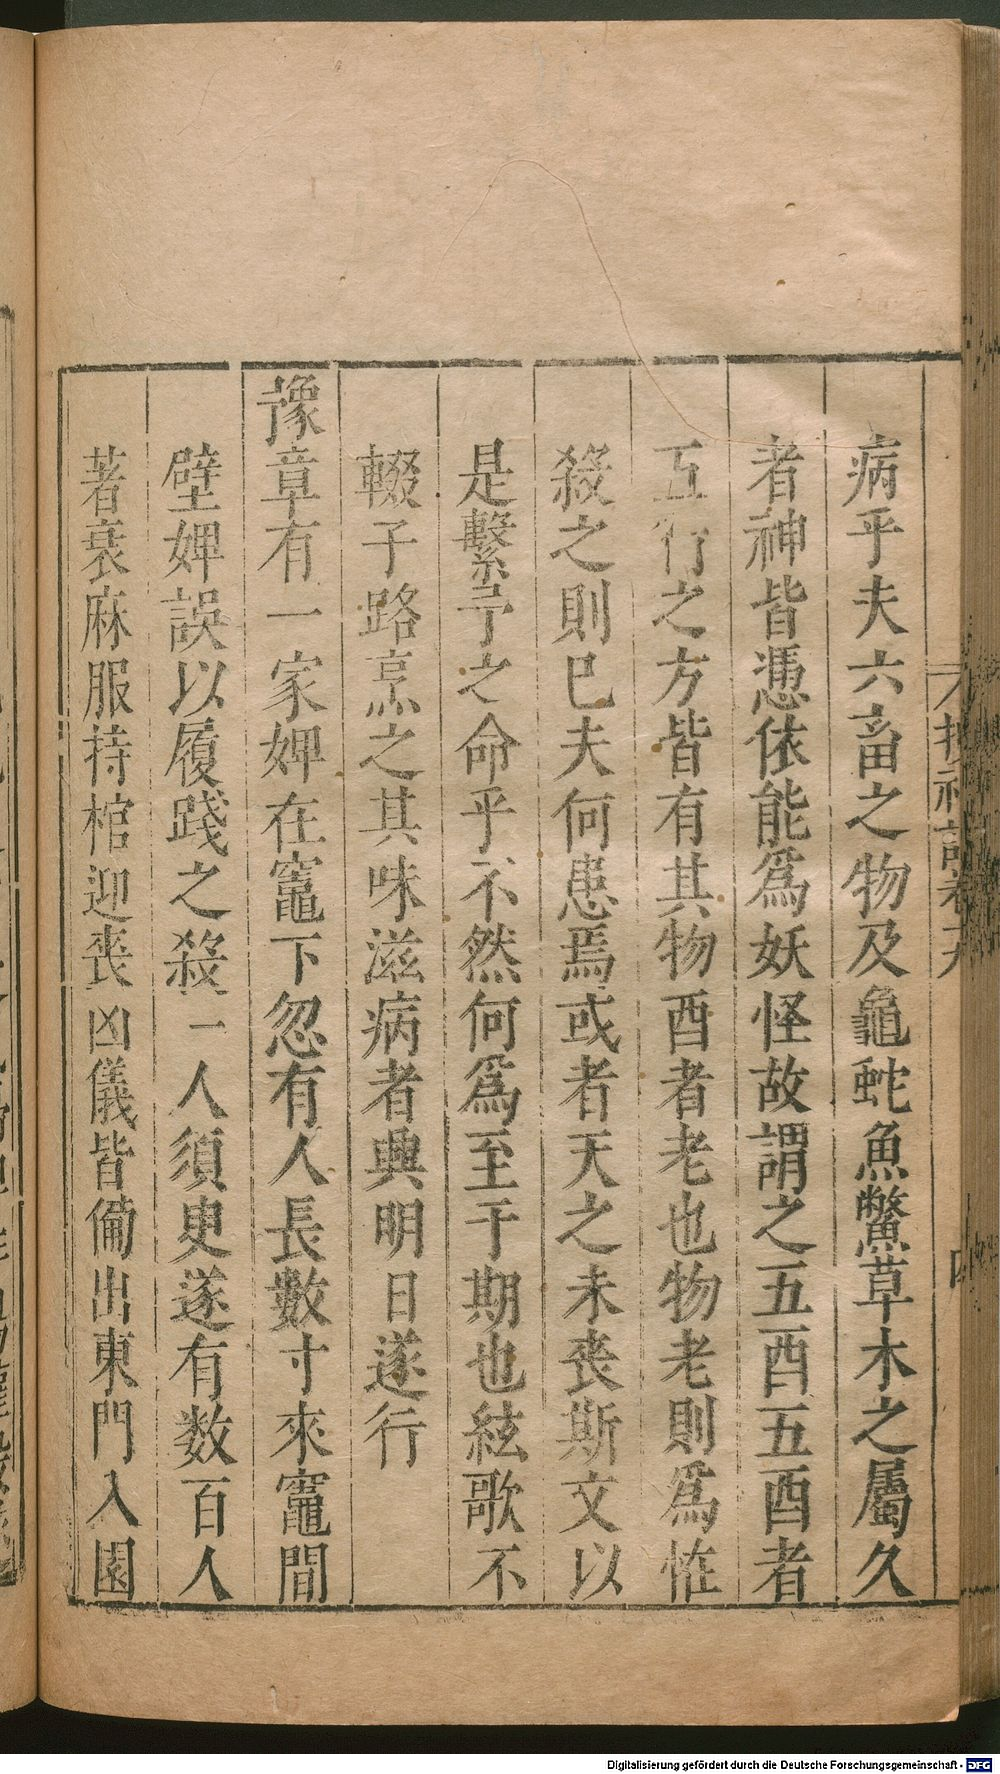 病乎夫六畜之物及龜蛇魚鱉草木之屬久
者神皆憑依能爲妖怪故謂之五酉五酉者
五行之方皆有其物酉者老也物老則爲怪
殺之則已夫何患焉或者天之未喪斯文以
是繫予之命乎不然何爲至于期也絃歌不
輟子路烹之其味滋病者興明日遂行
豫章有一家婢在竈下忽有人長數寸來竈間
壁婢誤以履踐之殺一人須臾遂有数百人
著衰麻服持棺迎喪凶儀皆備出東門入園
Digitalisierung gefördert durch die Deutsche Forschungsgemeinschaft - DFG